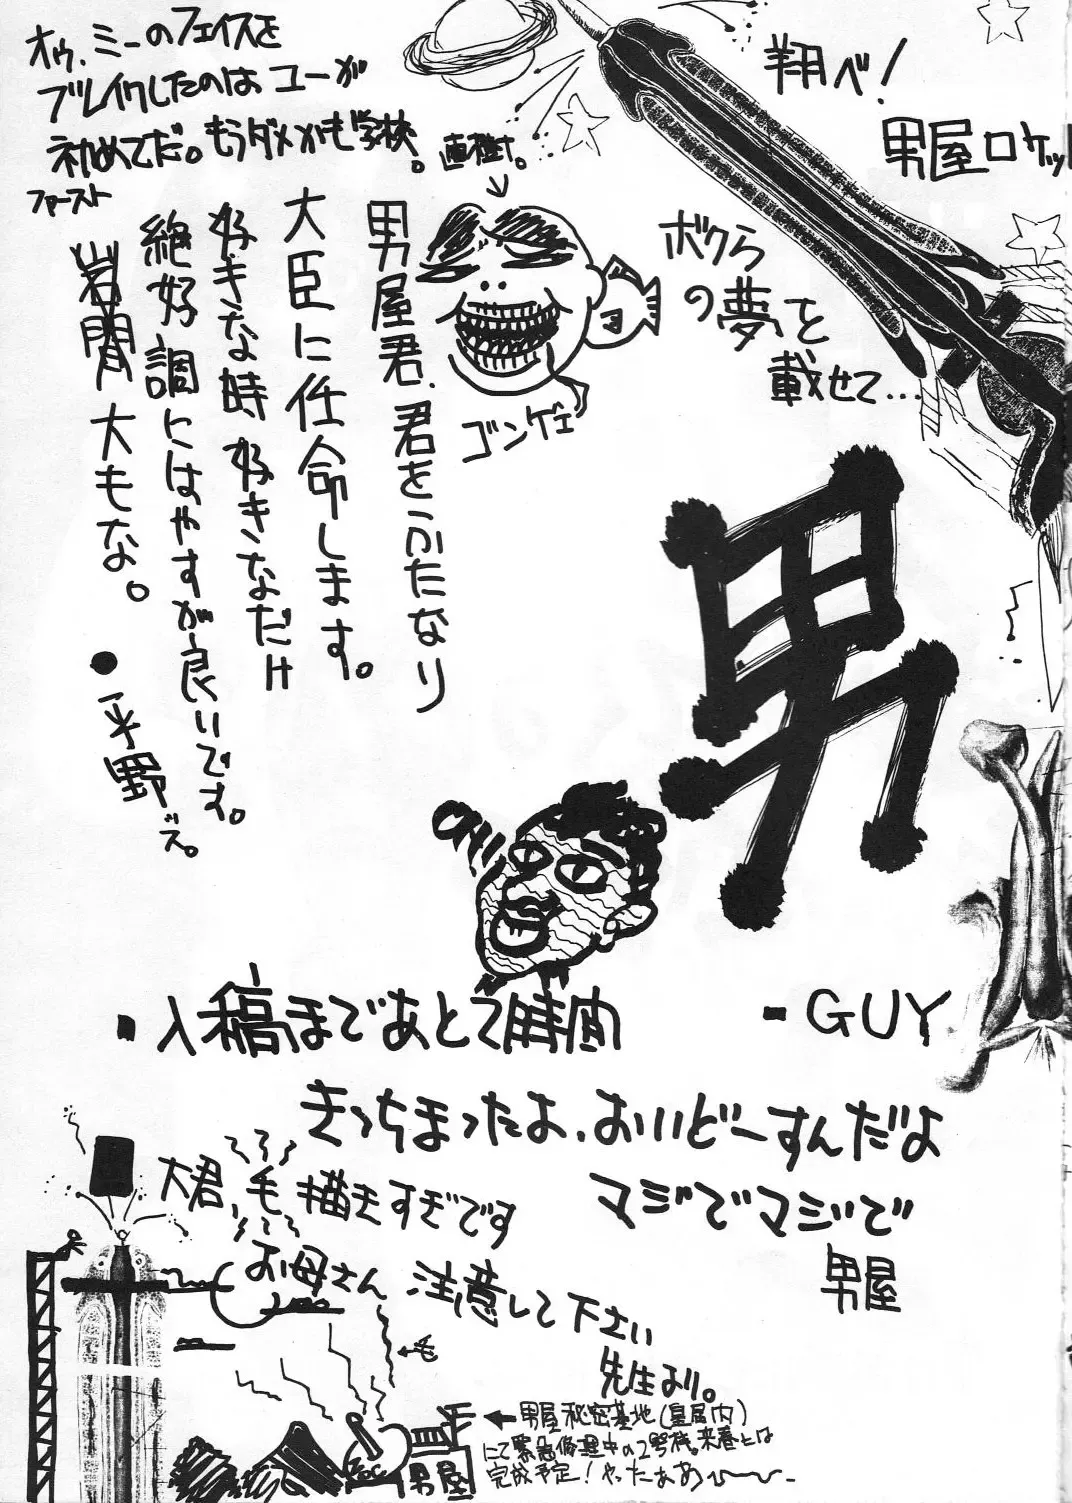 オゥ、ミーのフェイスを
ブレイクしたのはユーが
初めてだ。もうダメかも学校。
ファースト
直樹。
翔べ!
男屋ロケッ
ボクら
の夢を
載せて…
ゴンゲェ
男屋君、君をふたなり
大臣に任命します。
好きな時好きなだけ
絶好調にはやすが良いです。
岩間 大もな。
●平野ズ。
男
GUY
入稿まであと2時間
きっちまったよ、おいどーすんだよ
マジでマジで
男屋
大君、毛描きすぎです
お母さん 注意して下さい
先生より。
←毛
←男屋秘密基地(皇居内)
にて緊急修理中の2号機。来春には
完成予定!やったぁあ〜
男屋